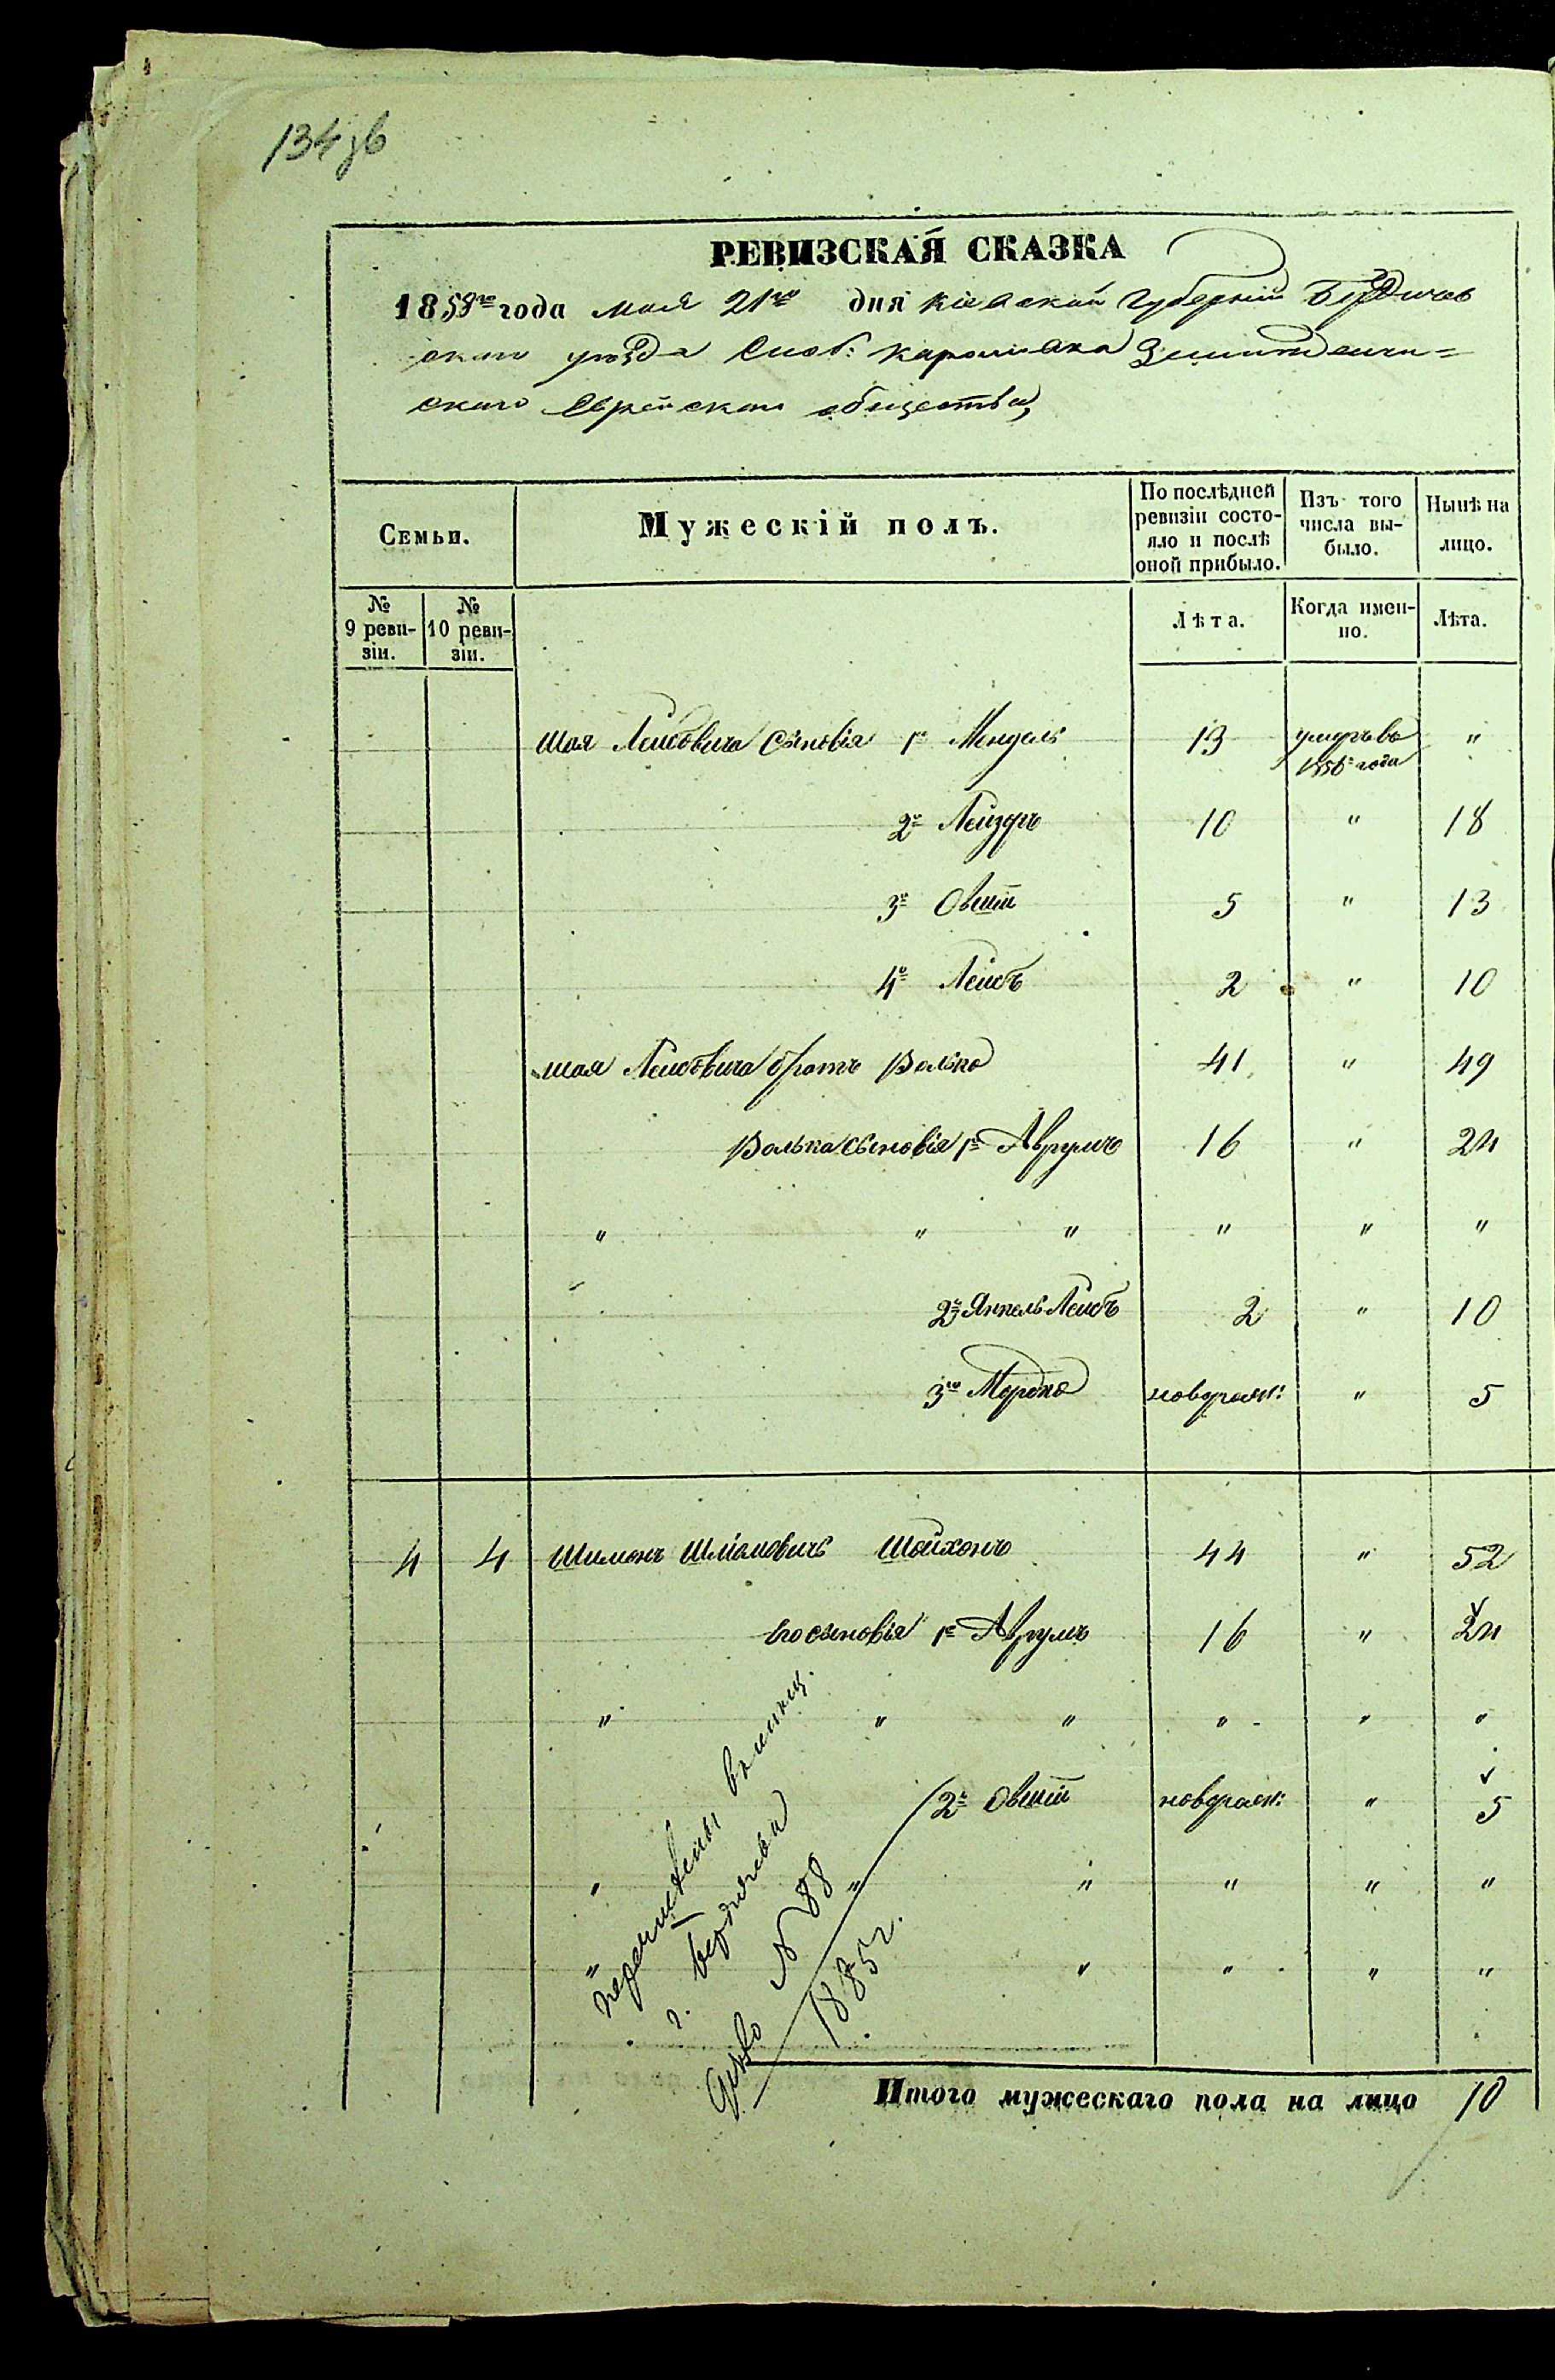 134 зв
РЕВИЗСКАЯ СКАЗКА
1858го года мая 21го дня Кіевской Губерніи Бердичев
скаго уѣзда Слоб:
скаго Еврейскаго общества,
Семьи.
Мужескій полъ.
По послѣдней ревизіи состо-
яло и послѣ оной прибыло.
Изъ того числа вы-
было.
Нынѣ на лицо.
№ 9 реви-
зіи.
№ 10 реви-
зіи.
Лѣта.
Когда имен-
но.
Лѣта.
Шая Лейбовича сыновія 1й Мендель 13 умеръ въ 1856 года "
2й Лейзоръ 10 " 18
3й Овшій 5 " 13
4й Лейбъ 2 " 10
Шая Лейбовича братъ Волько 41 " 49
Волька сыновія 1й Аврумъ 16 " 24
" " " " " "
2й Янкель Лейбъ 2 " 10
3й Мордко новорож: " 5
4 4 Шимонъ Шліомовичъ Шойхонъ 44 " 52
Его сыновія 1й Аврумъ 16 " 24
" " " " " "
2й Овшій новорож: " 5
" " " " " "
" " " " "
перечислены
г. Бердичева
дѣло № 88
1885 г.
Итого мужескаго пола на лицо 10